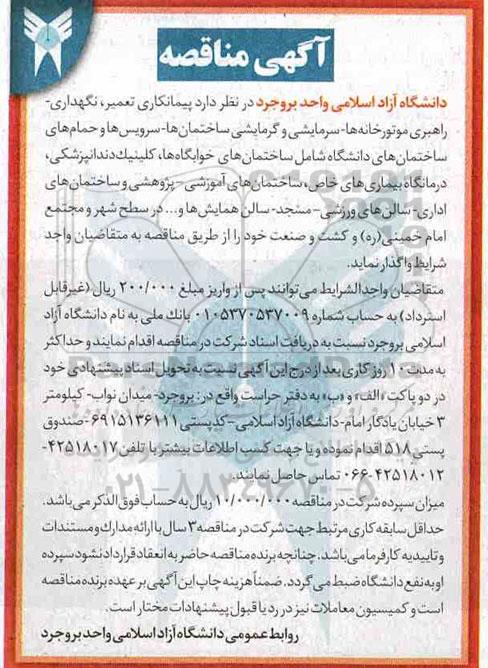 آگهی مناقصه
دانشگاه آزاد اسلامی واحد بروجرد در نظر دارد پیمانکاری تعمیر، نگهداری-
راهبری موتورخانه‌ها- سرمایشی و گرمایشی ساختمان‌ها- سرویس‌ها و حمام‌های
ساختمان‌های دانشگاه شامل ساختمان‌های خوابگاه‌ها، کلینیک دندانپزشکی،
درمانگاه بیماری‌های خاص، ساختمان‌های آموزشی- پژوهشی و ساختمان‌های
اداری- سالن‌های ورزشی- مسجد- سالن همایش‌ها و... در سطح شهر و مجتمع
امام خمینی(ره) و کشت و صنعت خود را از طریق مناقصه به متقاضیان واجد
شرایط واگذار نماید.
متقاضیان واجدالشرایط می‌توانند پس از واریز مبلغ ۲۰۰/۰۰۰ ریال (غیرقابل
استرداد) به حساب شماره ۰۱۰۵۳۷۰۵۳۷۰۰۹ بانک ملی به نام دانشگاه آزاد
اسلامی بروجرد نسبت به دریافت اسناد شرکت در مناقصه اقدام نمایند و حداکثر
به مدت ۱۰ روز کاری بعد از درج این آگهی نسبت به تحویل اسناد پیشنهادی خود
در دو پاکت «الف» و «ب» به دفتر حراست واقع در: بروجرد- میدان نواب- کیلومتر
۳ خیابان یادگار امام- دانشگاه آزاد اسلامی- کدپستی ۶۹۱۵۱۳۶۱۱۱- صندوق
پستی ۵۱۸ اقدام نموده و یا جهت کسب اطلاعات بیشتر با تلفن ۴۲۵۱۸۰۱۷-
۰۶۶-۴۲۵۱۸۰۱۲ تماس حاصل نمایند.
میزان سپرده شرکت در مناقصه ۱۰/۰۰۰/۰۰۰ ریال به حساب فوق الذکر می‌باشد.
حداقل سابقه کاری مرتبط جهت شرکت در مناقصه ۳ سال با ارائه مدارک و مستندات
و تاییدیه کارفرما می‌باشد. چنانچه برنده مناقصه حاضر به انعقاد قرارداد نشود سپرده
او به نفع دانشگاه ضبط می‌گردد. ضمناً هزینه چاپ این آگهی بر عهده برنده مناقصه
است و کمیسیون معاملات نیز در رد یا قبول پیشنهادات مختار است.
روابط عمومی دانشگاه آزاد اسلامی واحد بروجرد